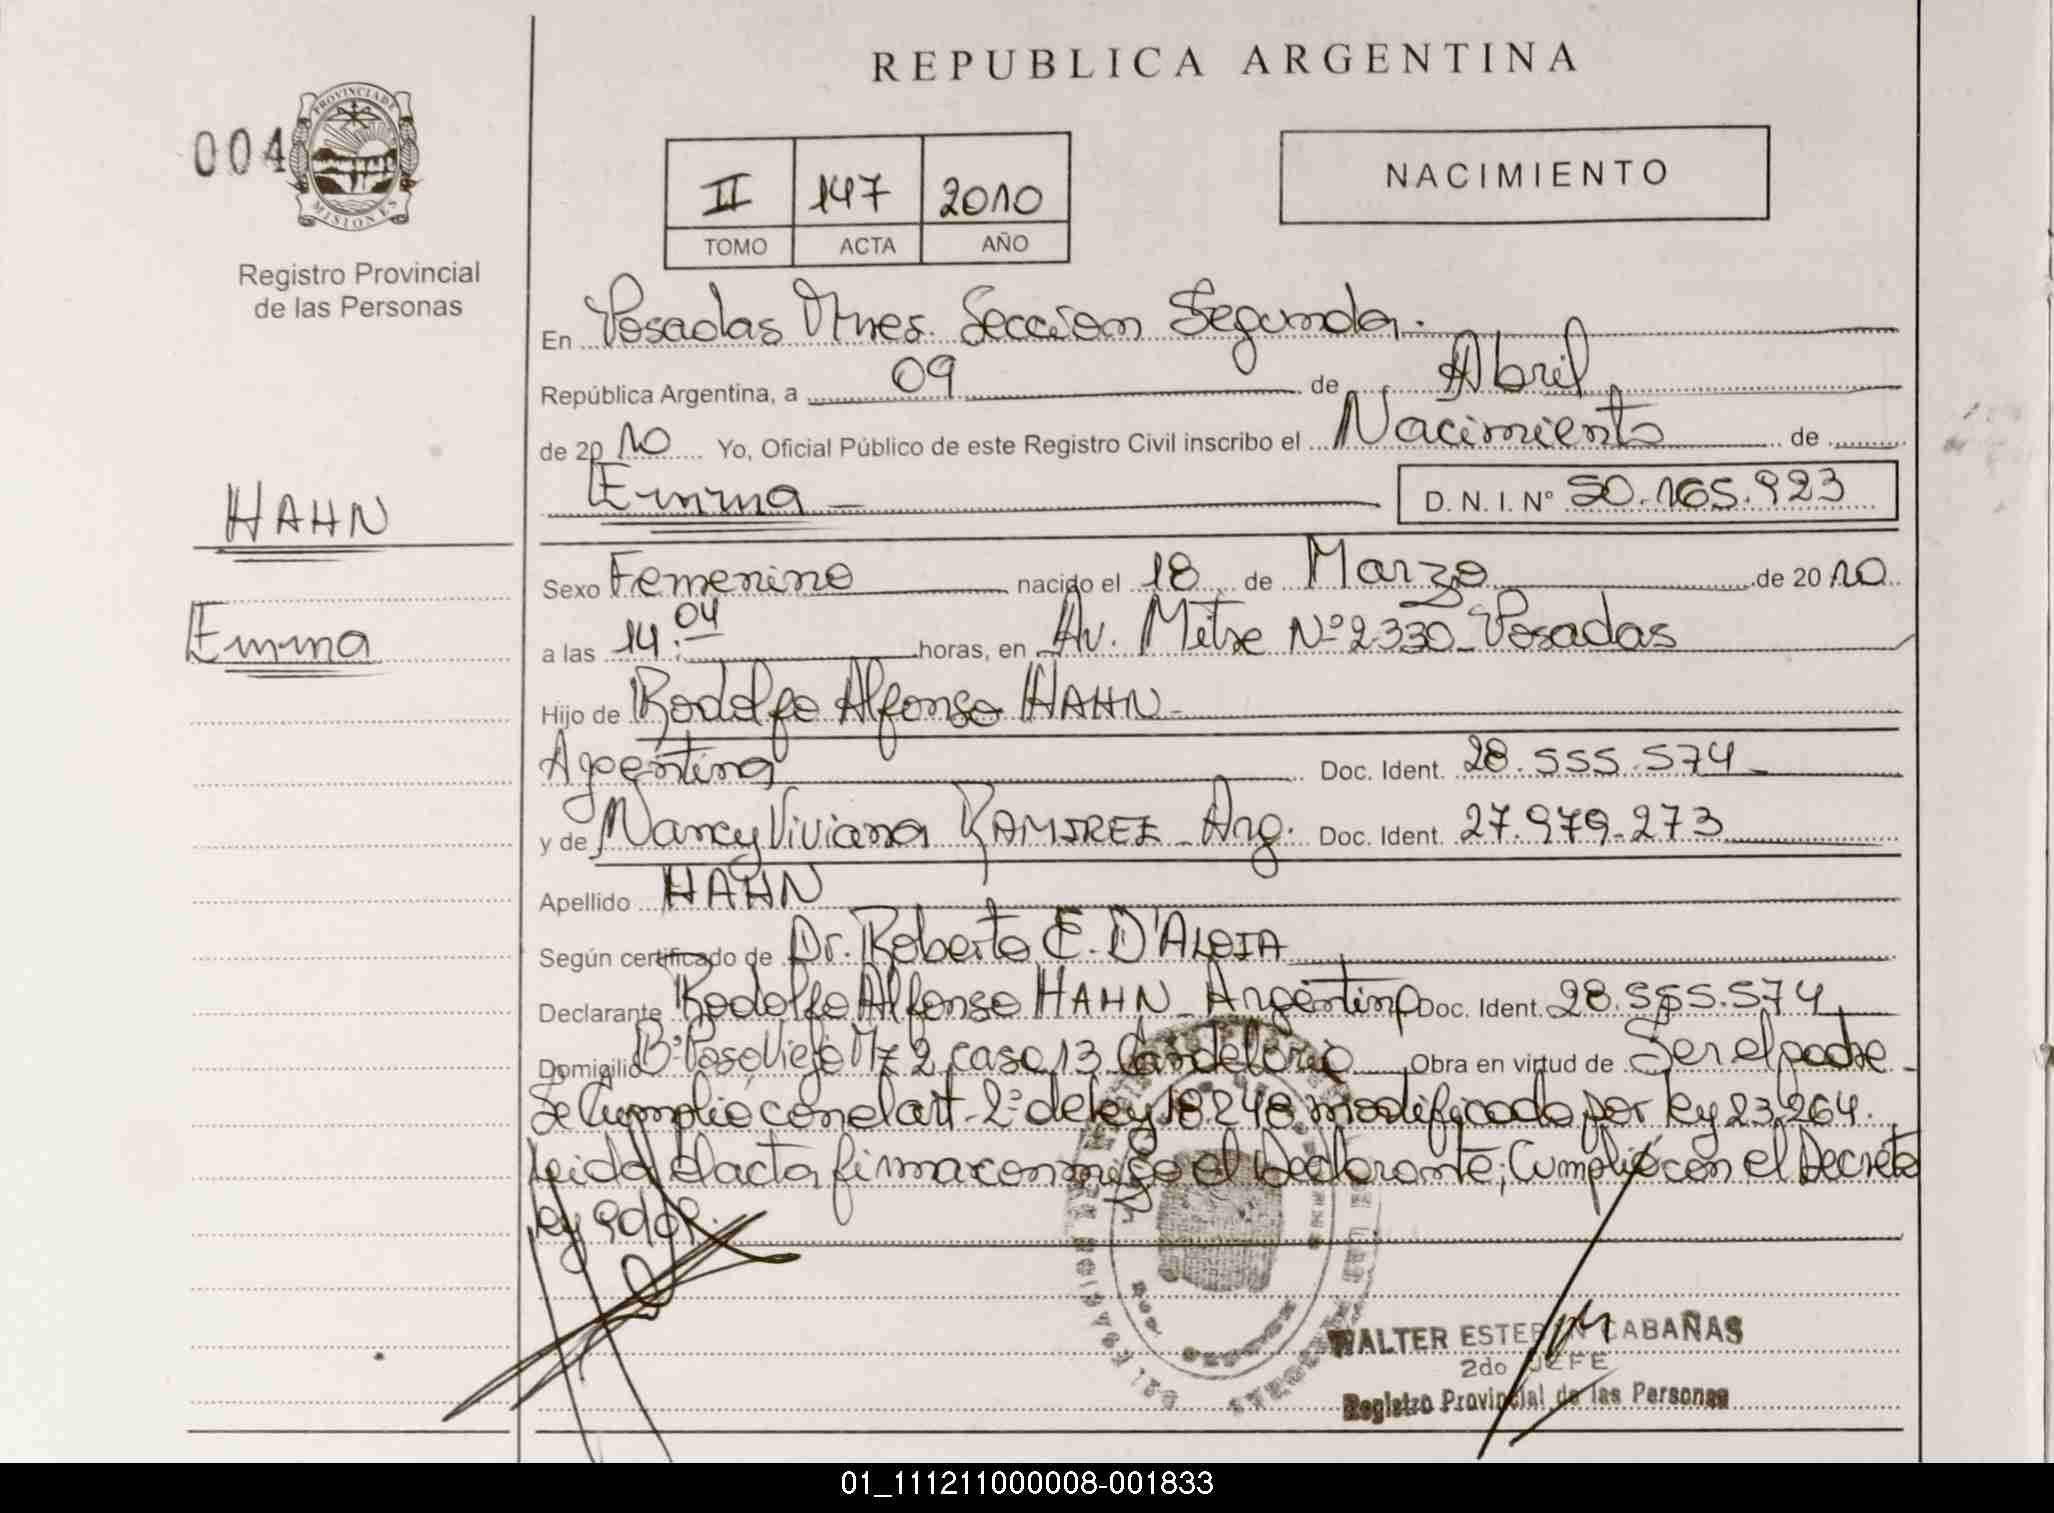 REPUBLICA ARGENTINA
004
PROVINCIA DE
MISIONES
Registro Provincial
de las Personas
II 147 2010
TOMO ACTA AÑO
NACIMIENTO
En Posadas Mnes. Sección Segunda.
República Argentina, a 09 de Abril
de 2010 Yo, Oficial Público de este Registro Civil inscribo el Nacimiento de
Emma D. N. I. Nº 50.165.923
HAHN
Emma
Sexo Femenino nacido el 18 de Marzo de 2010
a las 14:04 horas, en Av. Mitre Nº 2330 - Posadas
Hijo de Rodolfo Alfonso HAHN -
Argentino Doc. Ident. 28.555.574 -
y de Nancy Viviana RAMIREZ - Arg. Doc. Ident. 27.979.273
Apellido HAHN
Según certificado de Dr. Roberto E. D'ALOIA
Declarante Rodolfo Alfonso HAHN - Argentino Doc. Ident. 28.555.574
Domicilio Bº Poso Viejo Mz 2 casa 13 Candelaria Obra en virtud de Ser el padre -
Se Cumplió con el art. 2º de ley 18248 modificado por ley 23.264.
Leida el acta firma conmigo el Declarante; Cumplió con el Decreto
ley
WALTER ESTEBAN CABAÑAS
2do JEFE
Registro Provincial de las Personas
01_111211000008-001833